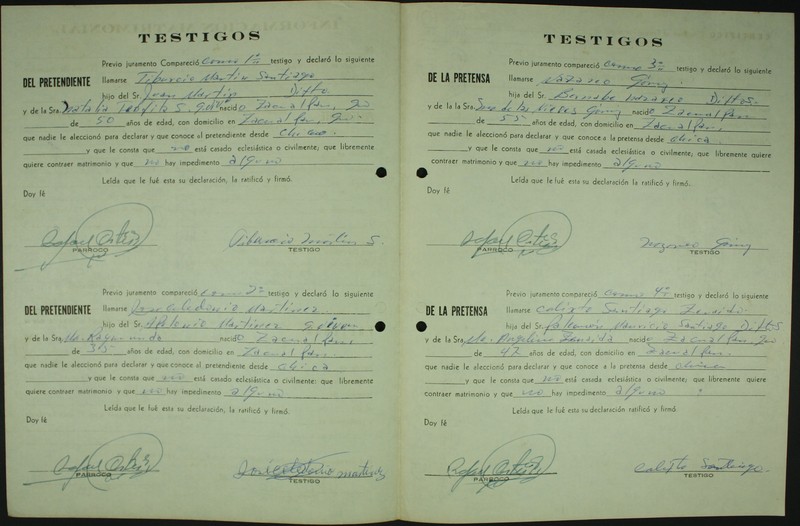 TESTIGOS
Previo juramento Compareció como 1º testigo y declaró lo siguiente
DEL PRETENDIENTE
llamarse Tiburcio Martin Santiago
hijo del Sr. Juan Martin Difto
y de la Sra. Natalia Teofila S. nacido Zacualpan,
de 50 años de edad, con domicilio en Zacualpan,
que nadie le aleccionó para declarar y que conoce al pretendiente desde chico
y que le consta que no está casado eclesiástica o civilmente; que libremente
quiere contraer matrimonio y que no hay impedimento alguno
Leída que le fué esta su declaración, la ratificó y firmó.
Doy fé
Rafael Ortiz
PARROCO
Tiburcio Martin S.
TESTIGO
Previo juramento compareció como 2º testigo y declaró lo siguiente
DEL PRETENDIENTE
llamarse José Celedonio Martinez
hijo del Sr. Apolonio Martinez
y de la Sra. Ma. Raymunda nacido Zacualpan,
de 35 años de edad, con domicilio en Zacualpan
que nadie le aleccionó para declarar y que conoce al pretendiente desde chico
y que le consta que no está casado eclesiástica o civilmente: que libremente
quiere contraer matrimonio y que no hay impedimento alguno
Leída que le fué esta su declaración, la ratificó y firmó.
Doy fé
Rafael Ortiz
PARROCO
José Celedonio Martinez
TESTIGO
TESTIGOS
Previo juramento compareció como 3º testigo y declaró lo siguiente
DE LA PRETENSA
llamarse Nazareo Giny
hijo del Sr. Bernabe Nazareo Diftos.
y de la Sra. de las Nieves Giny nacido Zacualpan
de 55 años de edad, con domicilio en Zacualpan,
que nadie le aleccionó para declarar y que conoce a la pretensa desde chica.
y que le consta que no está casado eclesiástica o civilmente, que libremente quiere
contraer matrimonio y que no hay impedimento alguno
Leída que le fué esta su declaración la ratificó y firmó.
Doy fé
Rafael Ortiz
PARROCO
Nazareo Giny
TESTIGO
Previo juramento compareció como 4º testigo y declaró lo siguiente
DE LA PRETENSA
llamarse Calixto Santiago
hijo del Sr. Mauricio Santiago Diftos
y de la Sra. Ma. Angelina nacido Zacualpan,
de 42 años de edad, con domicilio en Zacualpan.
que nadie le aleccionó para declarar y que conoce a la pretensa desde chica
y que le consta que no está casado eclesiástica o civilmente; que libremente quiere
contraer matrimonio y que no hay impedimento alguno
Leída que le fué esta su declaración la ratificó y firmó.
Doy fé
Rafael Ortiz
PARROCO
Calixto Santiago.
TESTIGO